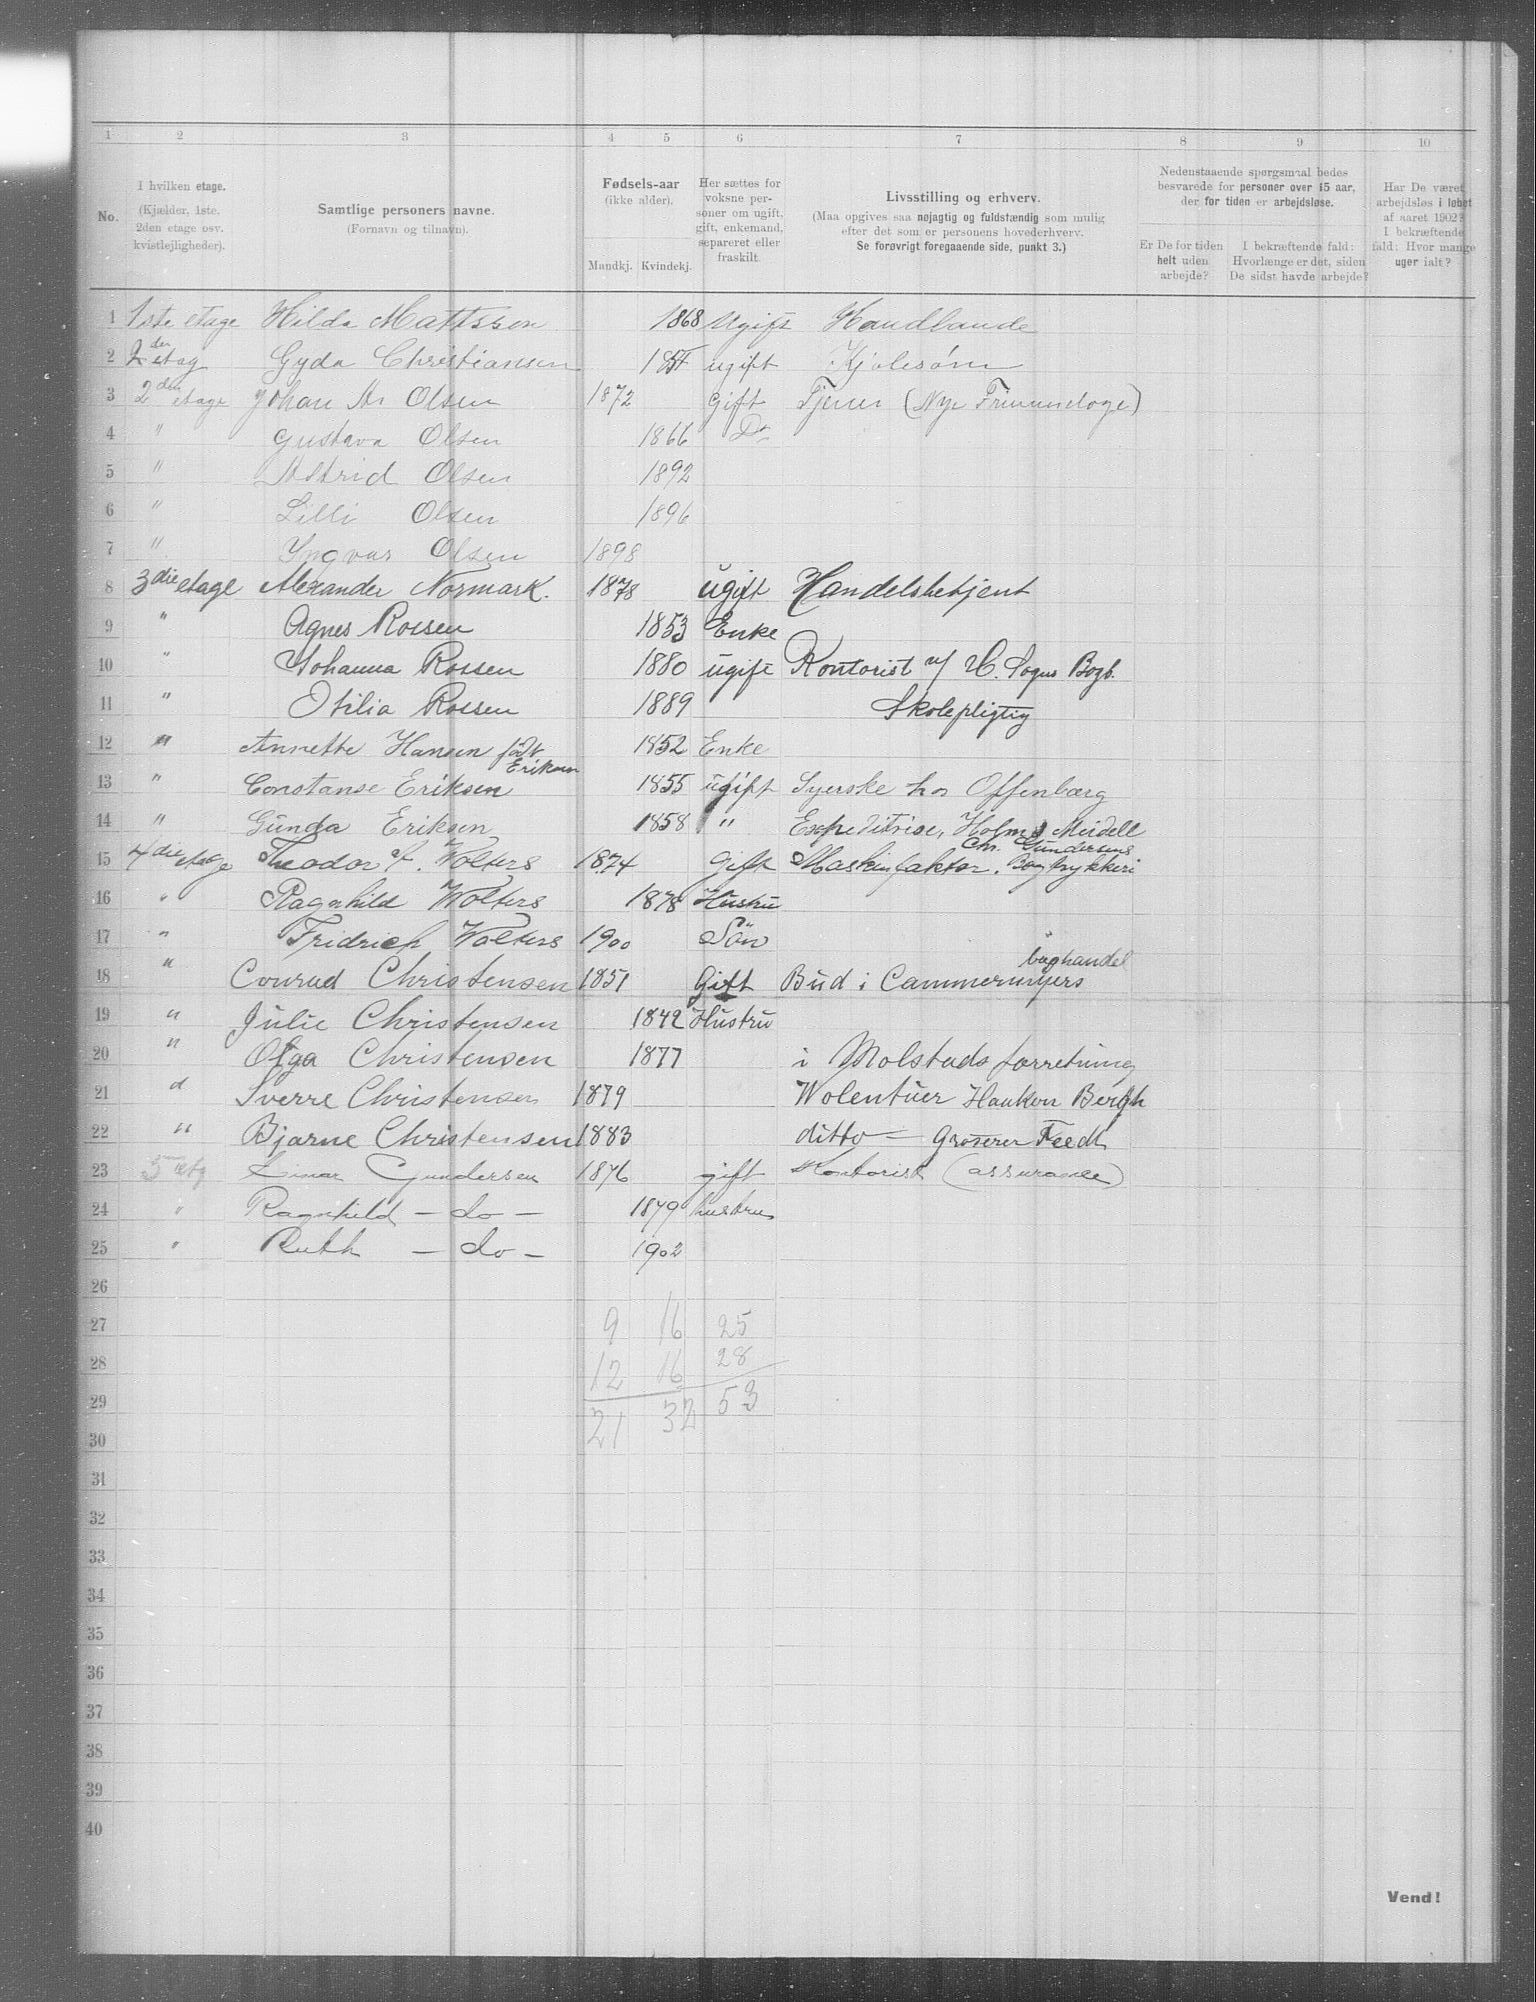 1 2 3 4 5 6 7 8 9 10
No.
I hvilken etage.
(Kjælder, 1ste.
2den etage osv.
kvistlejligheder).
Samtlige personers navne.
(Fornavn og tilnavn).
Fødsels-aar
(ikke alder).
Mandkj. Kvindekj.
Her sættes for
voksne per-
soner om ugift,
gift, enkemand,
separeret eller
fraskilt.
Livsstilling og erhverv.
(Maa opgives saa nøjagtig og fuldstændig som mulig
efter det som er personens hovederhverv.
Se forøvrigt foregaaende side, punkt 3.)
Nedenstaaende spørgsmaal bedes
besvarede for personer over 15 aar,
der for tiden er arbejdsløse.
Er De for tiden
helt uden
arbejde?
I bekræftende fald:
Hvorlænge er det, siden
De sidst havde arbejde?
Har De været
arbejdsløs i løbet
af aaret 1902?
I bekræftende
fald: Hvor mange
uger ialt?
1 1ste etage Hilda Mattsson 1868 Ugift Handlande
2 2den etag Gyda Christiansen ugift Kjolesøm
3 2den etage Johan Olsen 1872 Gift Tjener (Nye
4 " Gustava Olsen 1866 Do
5 " Astrid Olsen 1892
6 " Lilli Olsen 1896
7 " Yngvar Olsen 1898
8 3die etage Alexander Normark. 1878 ugift Handelsbetjent
9 " Agnes Rossen 1853 Enke
10 " Johanna Rossen 1880 ugift Kontorist v/ H. Sogns Bogb.
11 " Otilia Rossen 1889 Skolepligtig
12 " Annette Hansen født Eriksen 1852 Enke
13 " Constanse Eriksen 1855 ugift Syerske hos Offenberg
14 " Gunda Eriksen 1858 " Expeditrise, Holm &
15 4die etage Theodor F. Wolters 1874 gift Maskinfaktor. Chr. Gundersens Bogtrykkeri
16 " Ragnhild Wolters 1878 Hustru
17 " Fridrich Wolters 1900 Sön
18 " Conrad Christensen 1851 Gift Bud i Cammermeyers boghandel
19 " Julie Christensen 1842 Hustru
20 " Olga Christensen 1877 i Molstads forretning
21 d Sverre Christensen 1879 Wolentüer Haukon Bergh
22 " Bjarne Christensen 1883 ditto — Groserer
23 3 etg Einar Gundersen 1876 gift Kontorist (assurance)
24 " Ragnhild — do — 1879 hustru
25 " Ruth — do — 1902
26
27 9 16 25
28 12 16 28
29 21 32 53
30
31
32
33
34
35
36
37
38
39
40
Vend!